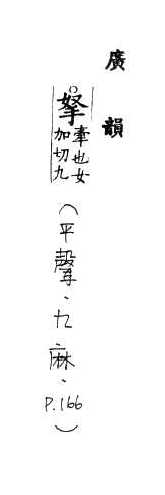 廣韻
拏 牽也女
加切九
（平聲．九麻．P.166）